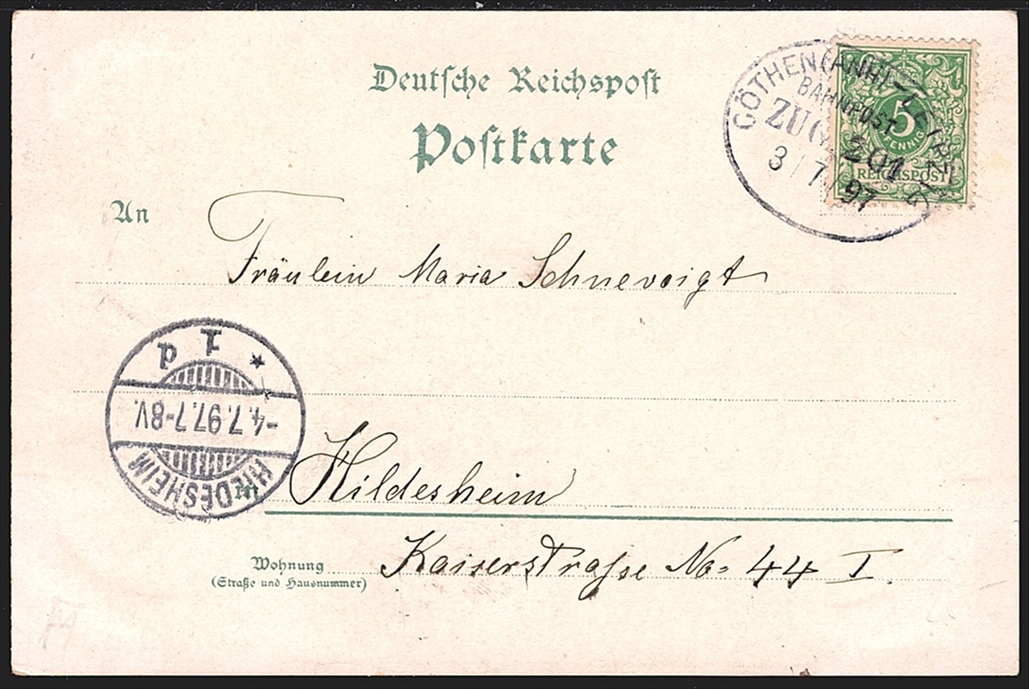 Deutsche Reichspost
Postkarte
CÖTHEN (ANH) - LEIPZIG
BAHNPOST
ZUG 201
3/7 97
5
PFENNIG
REICHSPOST
An
Fräulein Maria Schnevoigt
1 d
-4.7.97.7-8V.
HILDESHEIM
in Hildesheim
Wohnung
(Straße und Hausnummer)
Kaiserstrasse No. 44 I.